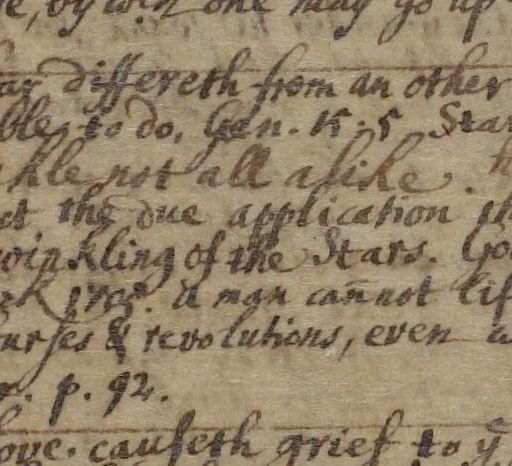 by wch one may go up
differeth from an other
ble to do, Gen. 15. 5 Star
kle not all alike.
the due application
twinkling of the Stars. Go
1705. a man cannot lif
ourses & revolutions, even a
p. 92.
love. causeth grief to ye